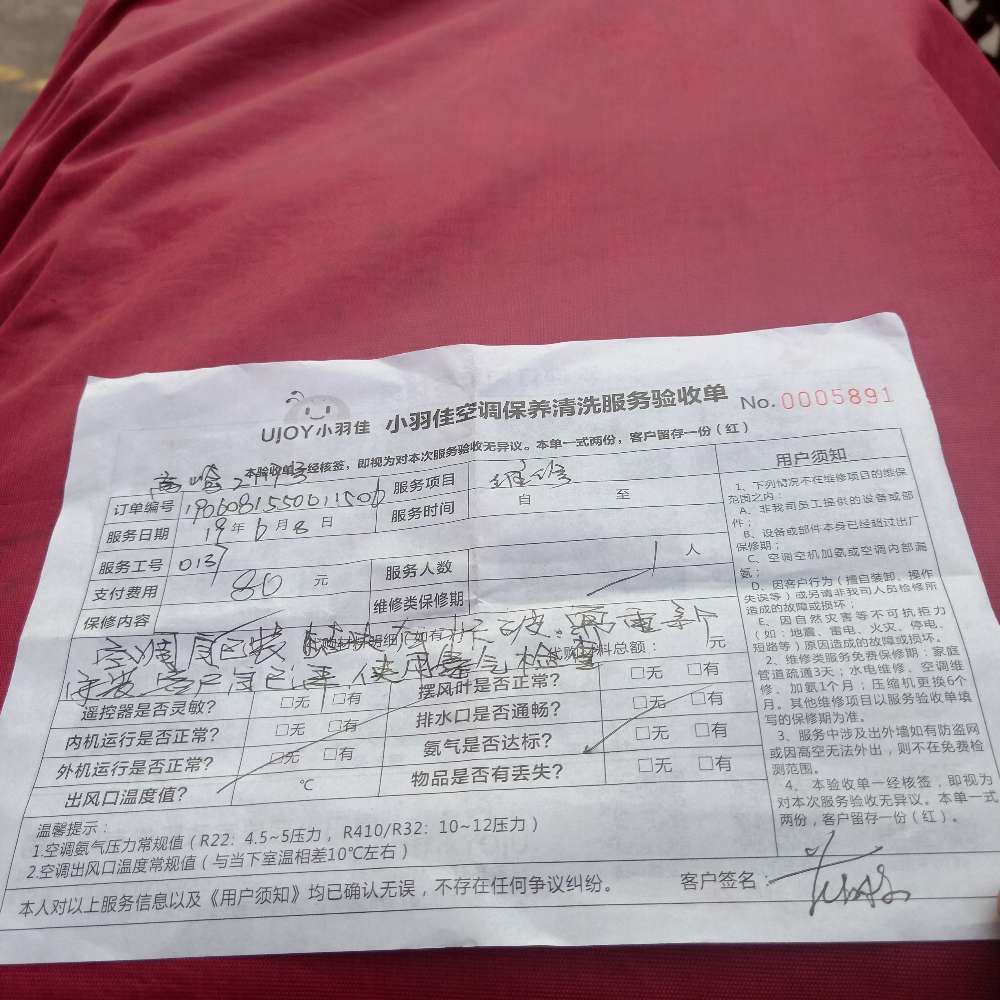 UJOY小羽佳 小羽佳空调保养清洗服务验收单 No.0005891
本验收单一经核签，即视为对本次服务验收无异议。本单一式两份，客户留存一份（红）
订单编号 服务项目 维修
服务日期 19年6月8日 服务时间 自 至
服务工号 013
支付费用 80元 服务人数 1人
保修内容 维修类保修期
代购材料总额： 元
遥控器是否灵敏? □无 □有 摆风叶是否正常? □无 □有
内机运行是否正常? □无 □有 排水口是否通畅? □无 □有
外机运行是否正常? □无 □有 氨气是否达标? □无 □有
出风口温度值? ℃ 物品是否有丢失? □无 □有
温馨提示：
1.空调氨气压力常规值（R22：4.5~5压力，R410/R32：10~12压力）
2.空调出风口温度常规值（与当下室温相差10℃左右）
本人对以上服务信息以及《用户须知》均已确认无误，不存在任何争议纠纷。 客户签名：
用户须知
1、下列情况不在维修项目的维保
范围之内：
A、非我司员工提供的设备或部
件；
B、设备或部件本身已经超过出厂
保修期；
C、空调空机加氨或空调内部漏
氨；
D、因客户行为（擅自装卸、操作
失误等）或另请非我司人员检修所
造成的故障或损坏；
E、因自然灾害等不可抗拒力
（如：地震、雷电、火灾、停电、
短路等）原因造成的故障或损坏。
2、维修类服务免费保修期：家庭
管道疏通3天；水电维修、空调维
修、加氨1个月；压缩机更换6个
月。其他维修项目以服务验收单填
写的保修期为准。
3、服务中涉及出外墙如有防盗网
或因高空无法外出，则不在免费检
测范围。
4、本验收单一经核签，即视为
对本次服务验收无异议。本单一式
两份，客户留存一份（红）。